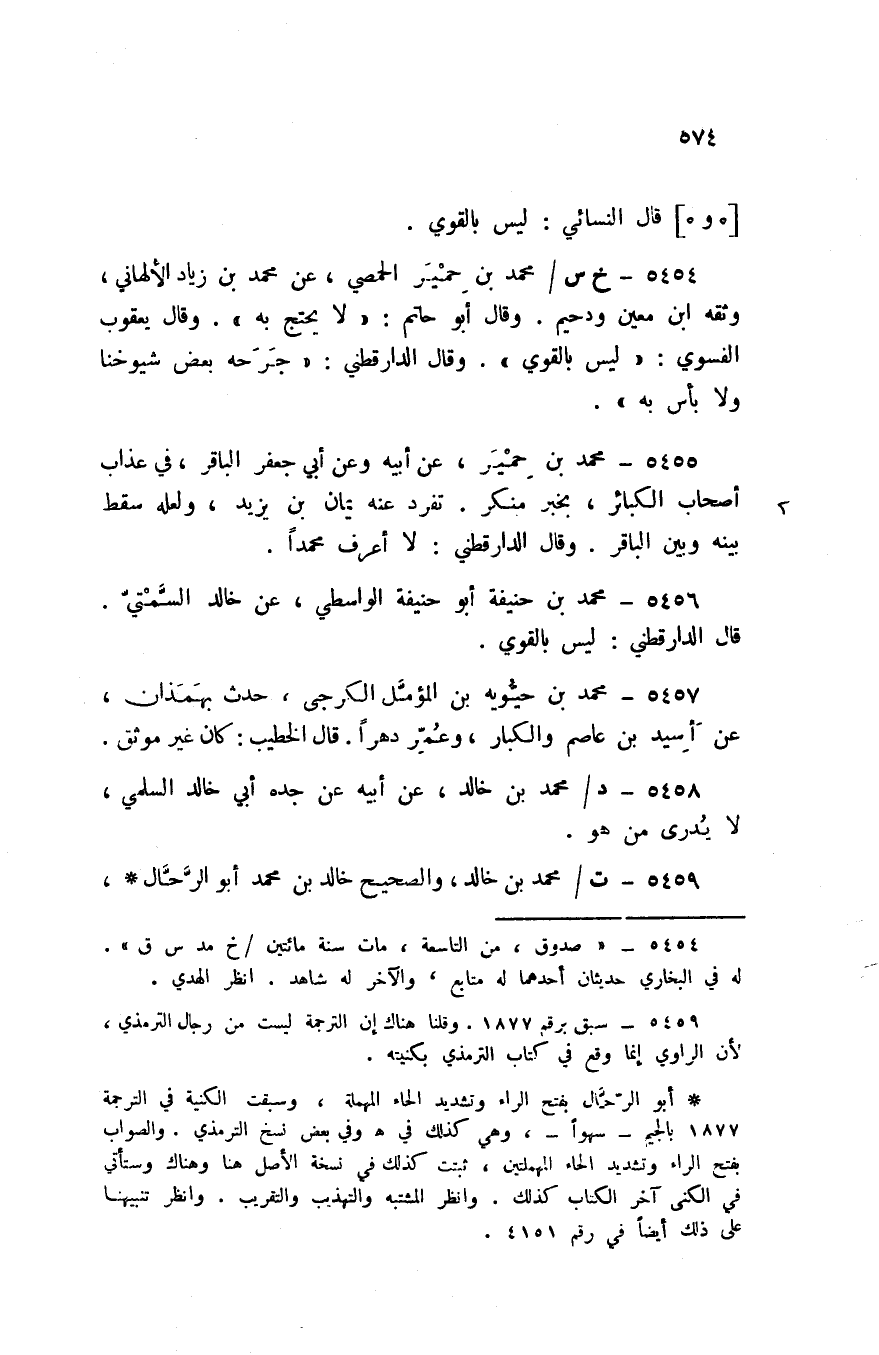 ٥٧٤
[ ٥ و ٥ ] قال النسائي : ليس بالقوي .
٥٤٥٤ – خ س / محمد بن حِمْيَر الحمصي ، عن محمد بن زياد الألهاني ،
وثقه ابن معين ودحيم . وقال أبو حاتم : « لا يحتج به » . وقال يعقوب
الفسوي : « ليس بالقوي » . وقال الدارقطني : « جَرَّحه بعض شيوخنا
ولا بأس به » .
٥٤٥٥ – محمد بن حِمْيَر ، عن أبيه وعن أبي جعفر الباقر ، في عذاب
أصحاب الكبائر ، بخبر منكر . تفرد عنه يمان بن يزيد ، ولعله سقط ٢
بينه وبين الباقر . وقال الدارقطني : لا أعرف محمداً .
٥٤٥٦ – محمد بن حنيفة أبو حنيفة الواسطي ، عن خالد السَّمْتيّ .
قال الدارقطني : ليس بالقوي .
٥٤٥٧ – محمد بن حيُّويه بن المؤمَّل الكرجي ، حدث بهَمَذان ،
عن أَسِيد بن عاصم والكبار ، وعُمِّر دهراً . قال الخطيب : كان غير موثق .
٥٤٥٨ – د / محمد بن خالد ، عن أبيه عن جده أبي خالد السلمي ،
لا يُدرى من هو .
٥٤٥٩ – ت / محمد بن خالد ، والصحيح خالد بن محمد أبو الرَّحَّال * ،
٥٤٥٤ – « صدوق ، من التاسعة ، مات سنة مائتين / خ مد س ق » .
له في البخاري حديثان أحدهما له متابع ، والآخر له شاهد . انظر الهدي .
٥٤٥٩ – سبق برقم ١٨٧٧ . وقلنا هناك إن الترجمة ليست من رجال الترمذي ،
لأن الراوي إنما وقع في كتاب الترمذي بكنيته .
* أبو الرَّحَّال بفتح الراء وتشديد الحاء المهملة ، وسبقت الكنية في الترجمة
١٨٧٧ بالجيم – سهواً – ، وهي كذلك في ه وفي بعض نسخ الترمذي . والصواب
بفتح الراء وتشديد الحاء المهملتين ، ثبتت كذلك في نسخة الأصل هنا وهناك وستأتي
في الكنى آخر الكتاب كذلك . وانظر المشتبه والتهذيب والتقريب . وانظر تنبيهنا
على ذلك أيضاً في رقم ٤١٥١ .